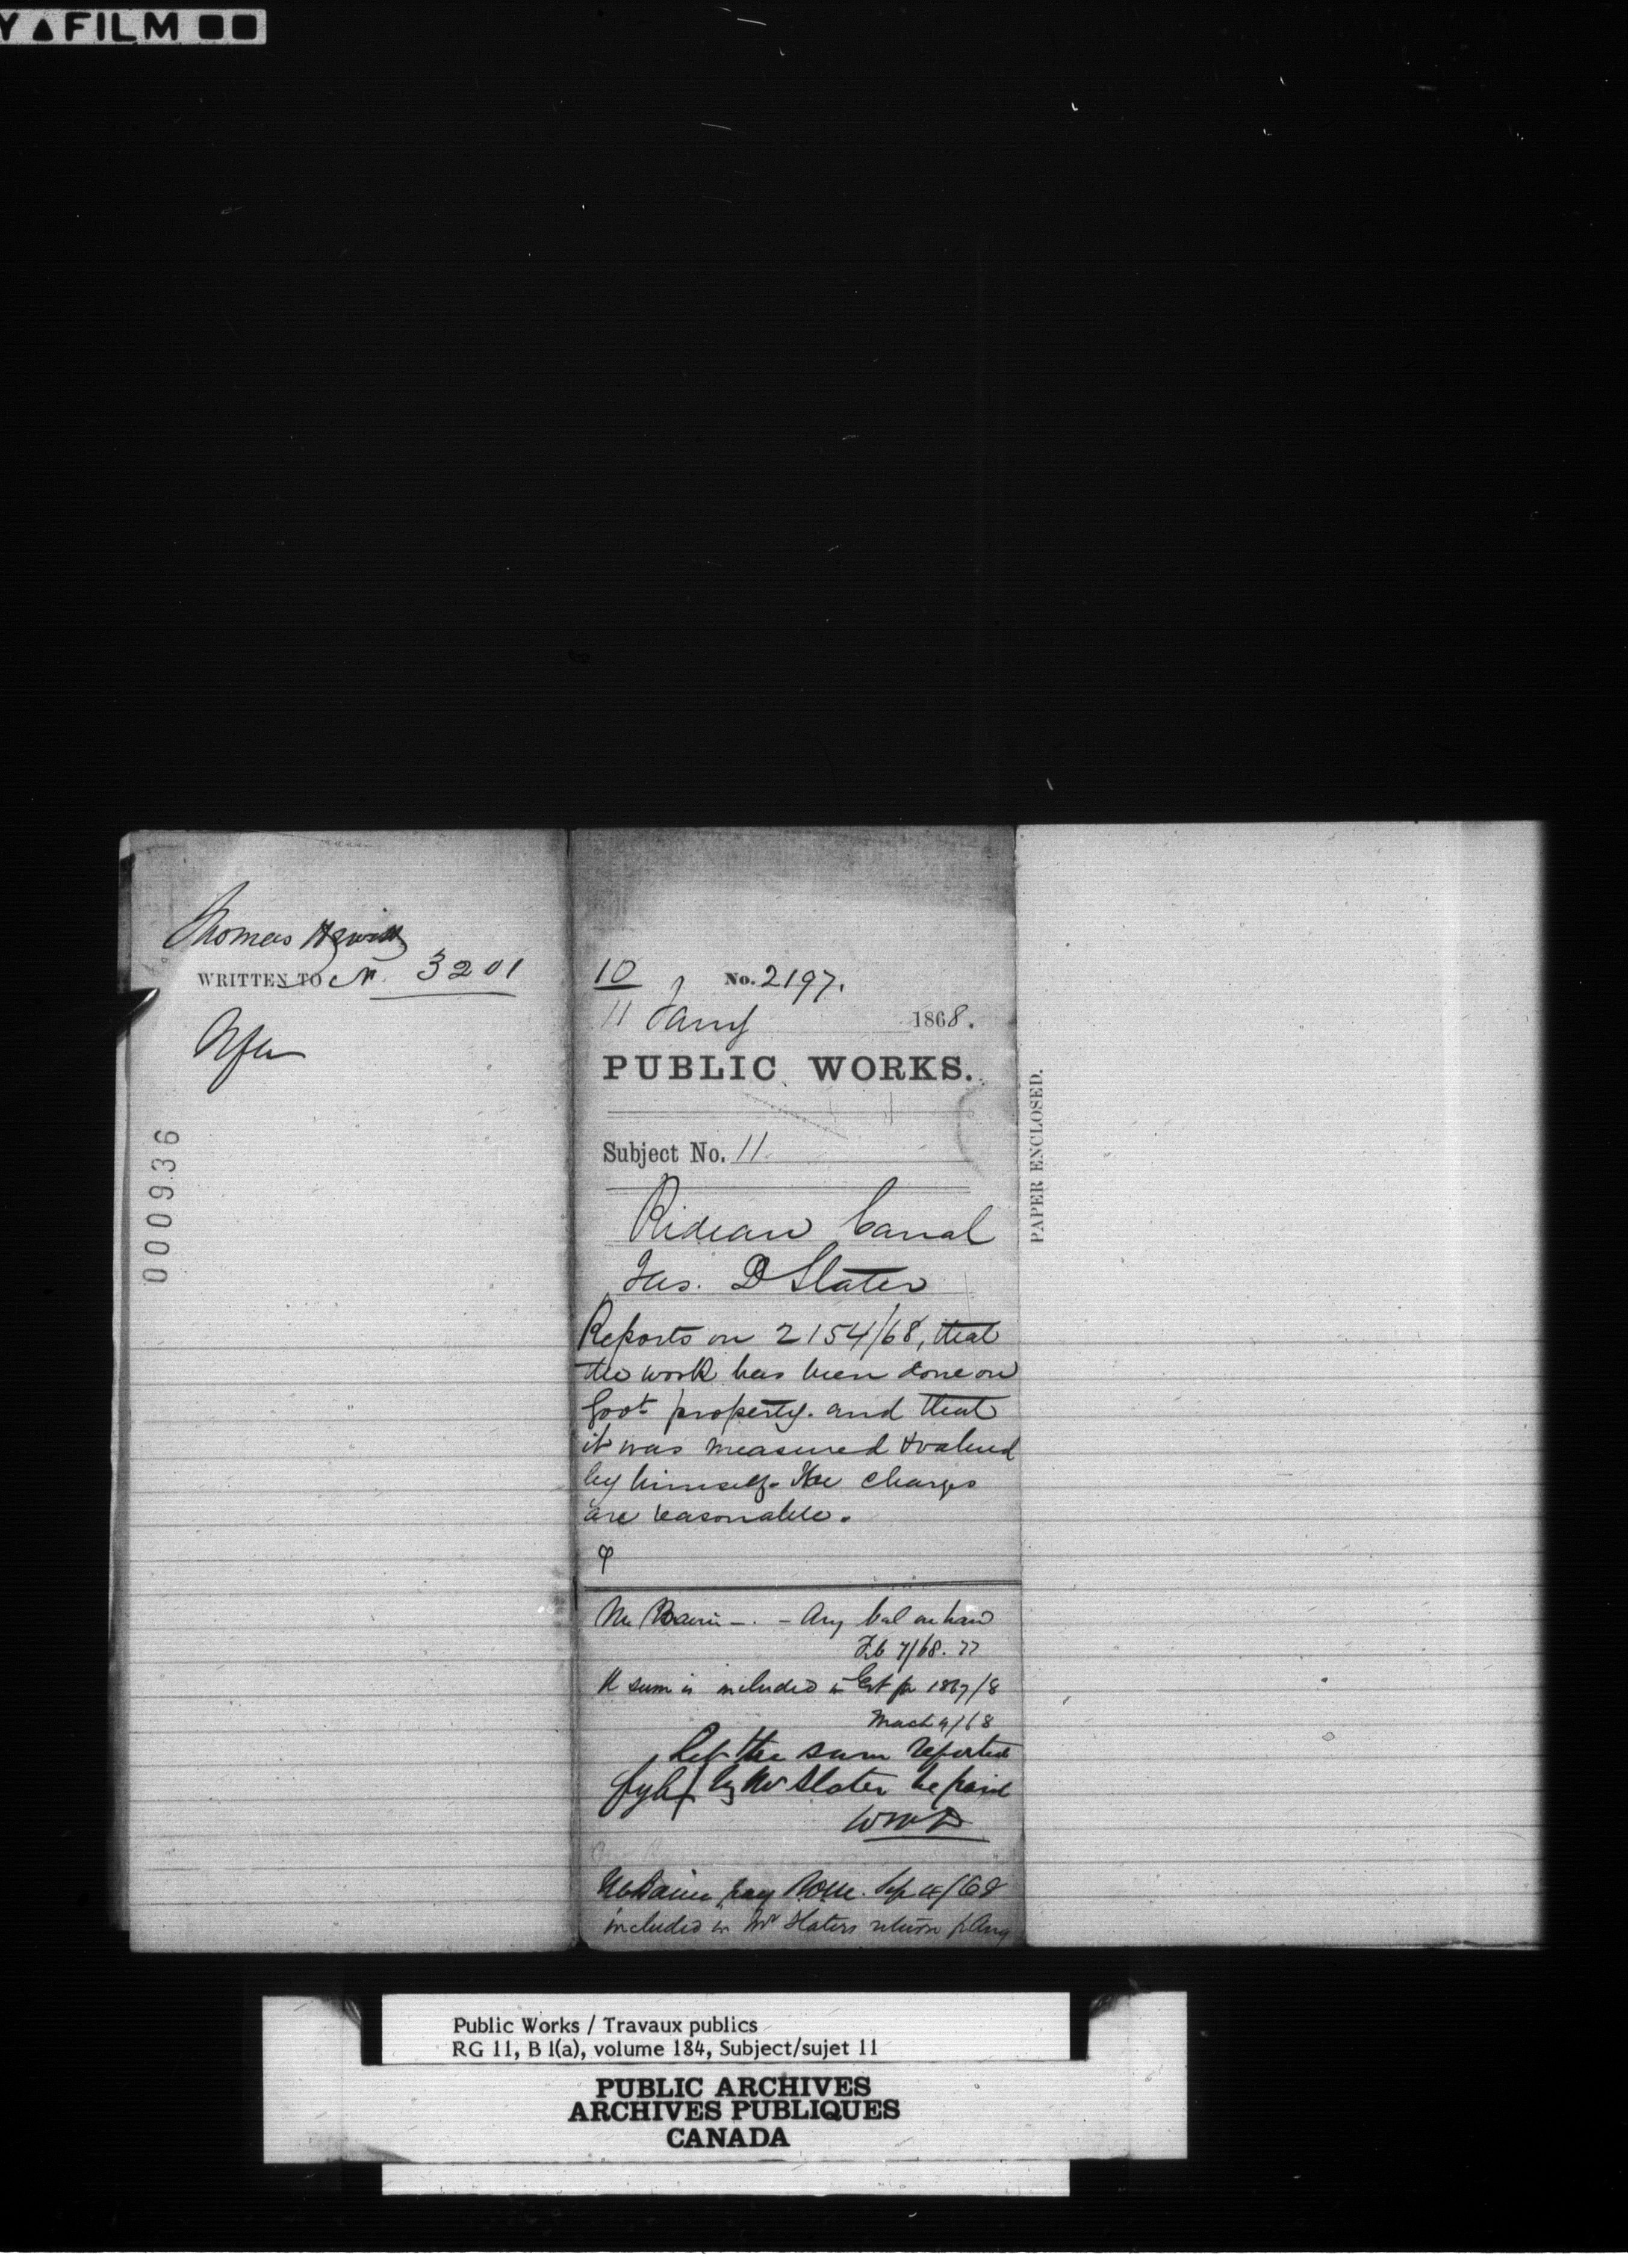 Y▲FILM
Thomas
WRITTEN TO N. 3201
000936
10 No. 2197.
11 Jany 1868.
PUBLIC WORKS.
Subject No. 11
Rideau Canal
Jas. D Slater
Reports on 2154/68, that
the work has been done on
Govt property. and that
it was measured & valued
by himself. The charges
are reasonable.
Mr Baine - . - Any bal on hand
Feb 7/68. TT
A sum is included in Est for 1867/8
March 4/68
Let the sum reported
by Mr Slater be paid
Mr Baine pay Sep 4/68
included in Mr Slaters return f Aug
PAPER ENCLOSED.
Public Works / Travaux publics
RG 11, B 1(a), volume 184, Subject/sujet 11
PUBLIC ARCHIVES
ARCHIVES PUBLIQUES
CANADA